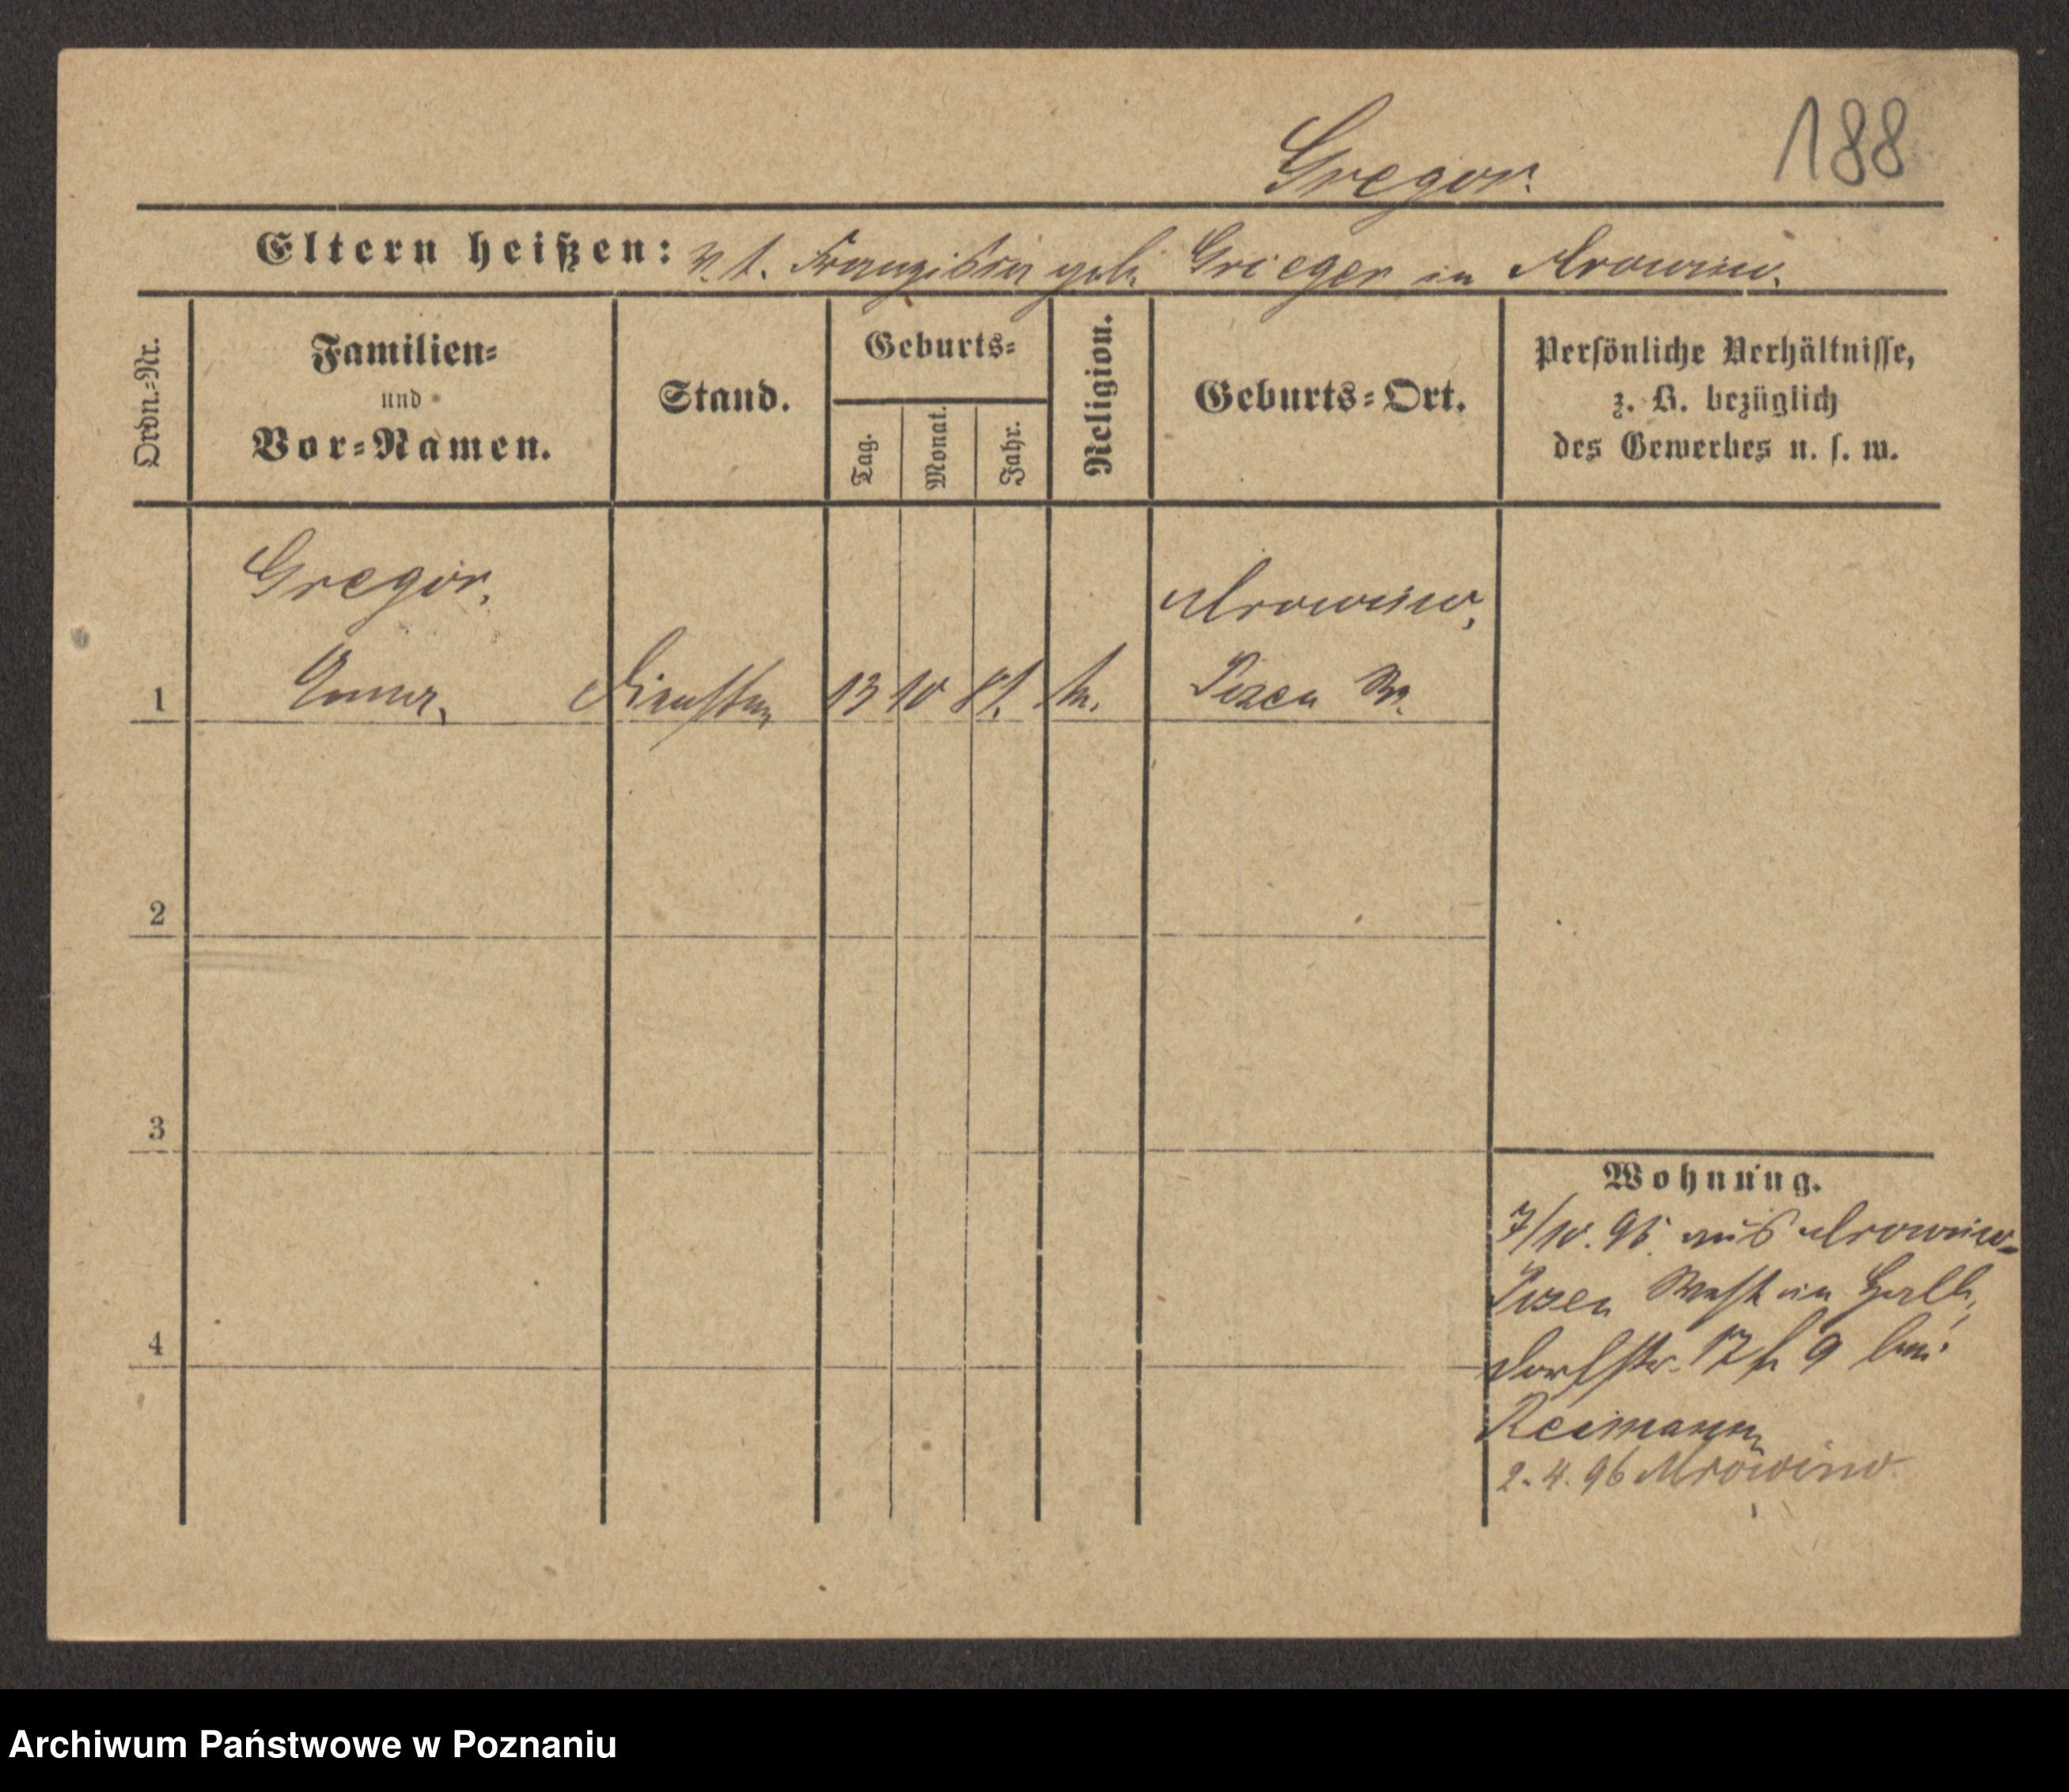 188
Gregor.
Eltern heißen: V. t. Franziska geb. Grieger in Mrowino.
Ordn.=Nr.
Familien=
und
Vor=Namen.
Stand.
Geburts=
Tag.
Monat.
Jahr.
Religion.
Geburts=Ort.
Persönliche Verhältnisse,
z. B. bezüglich
des Gewerbes u. s. w.
Gregor,
Mrowino,
1 Anna. 13 10 81. k. Posen W.
2
3
4
Wohnung.
7/10. 95. aus Mrowino-
Posen West in Halb,
dorfstr. 17 h 9 bei
Reimann
2. 4. 96 Mrowino
Archiwum Państwowe w Poznaniu